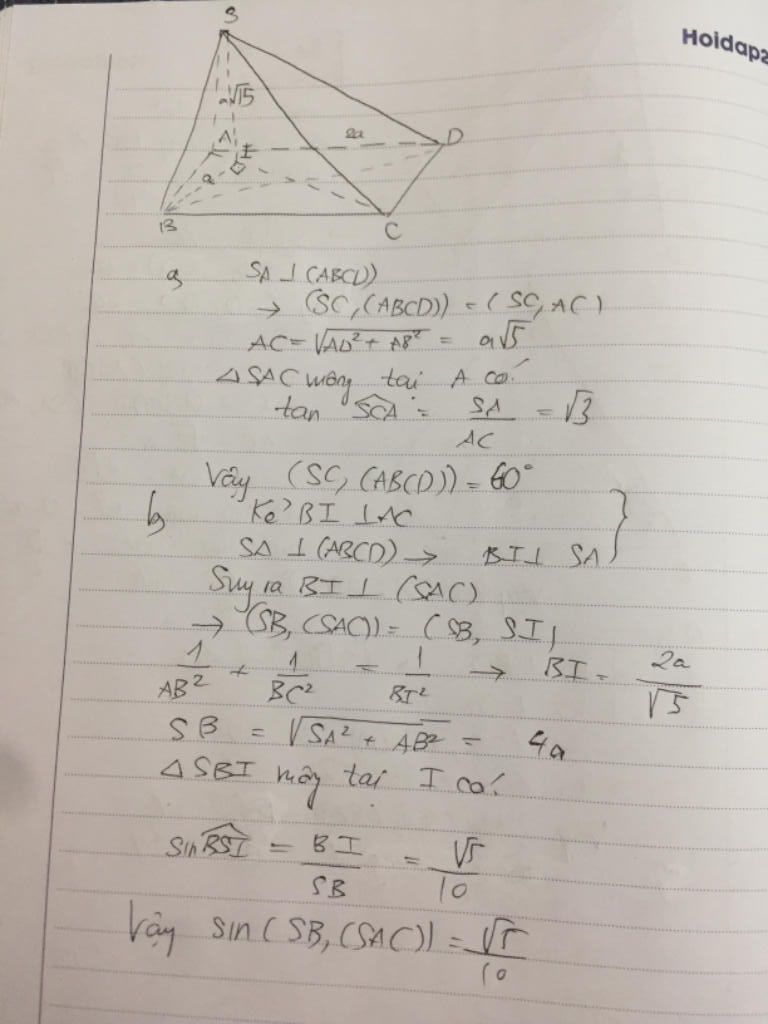 Hoidap2
S
a√15
A
I
2a
D
a
B
C
a, SA ⊥ (ABCD)
→ (SC, (ABCD)) = (SC, AC)
AC = √AD² + AB² = a√5
△ SAC vuông tại A có:
tan SCA = SA/AC = √3
Vậy (SC, (ABCD)) = 60°
b, Kẻ BI ⊥ AC
SA ⊥ (ABCD) → BI ⊥ SA }
Suy ra BI ⊥ (SAC)
→ (SB, (SAC)) = (SB, SI)
1/AB² + 1/BC² = 1/BI² → BI = 2a/√5
SB = √SA² + AB² = 4a
△ SBI vuông tại I có:
sin BSI = BI/SB = √5/10
Vậy sin (SB, (SAC)) = √5/10